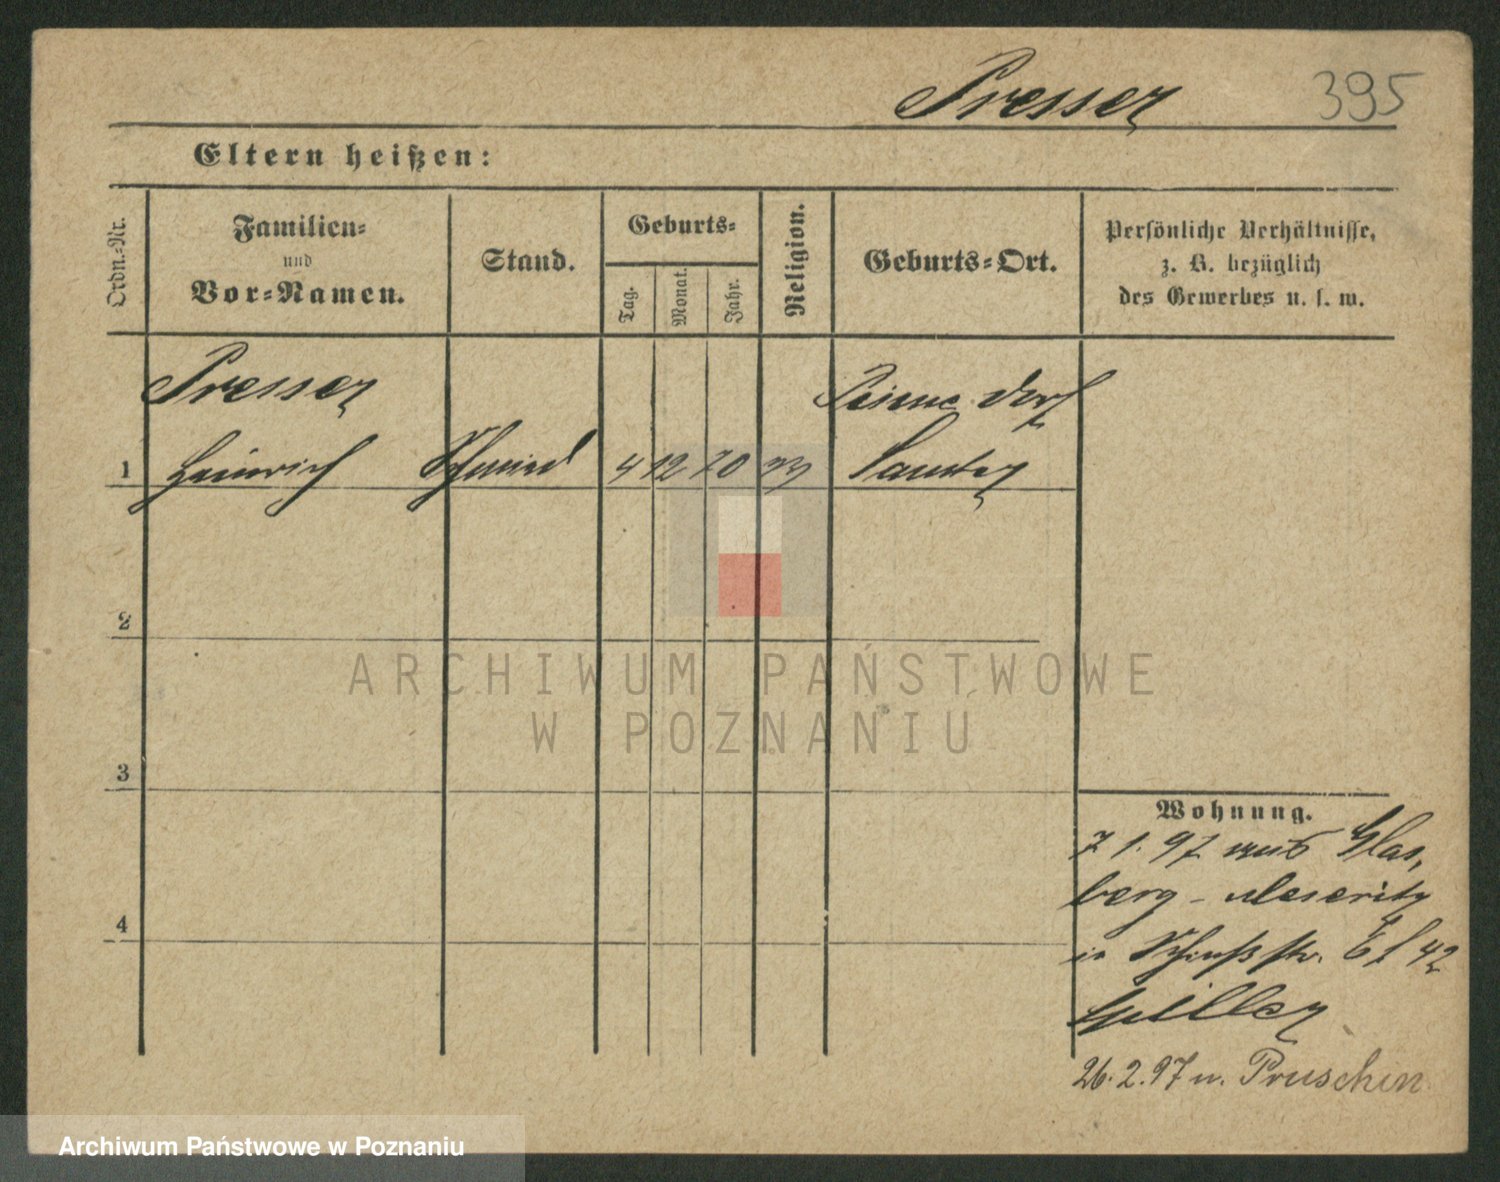 Presser 395
Eltern heißen:
Ordn.-Nr.
Familien-
und
Vor-Namen.
Stand.
Geburts-
Tag.
Monat.
Jahr.
Religion.
Geburts-Ort.
Persönliche Verhältnisse,
z. B. bezüglich
des Gewerbes u. s. w.
Presser
1 Heinrich Schmied 4 12 70
dorf
Samter
2
ARCHIWUM PAŃSTWOWE
W POZNANIU
3
Wohnung.
7 1. 97 aus Glas,
berg - Meseritz
in str. 42
26. 2. 97 n. Pruschin
4
Archiwum Państwowe w Poznaniu